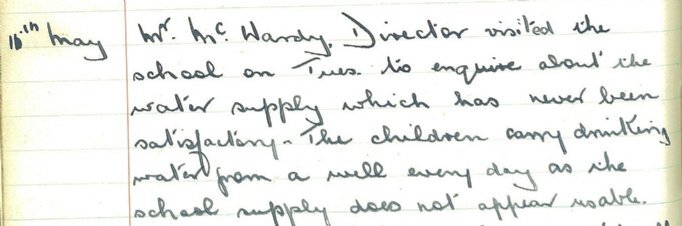 16th May Mr. Mc. Hardy, Director visited the
school on Tues. to enquire about the
water supply which has never been
satisfactory - The children carry drinking
water from a well every day as the
school supply does not appear usable.